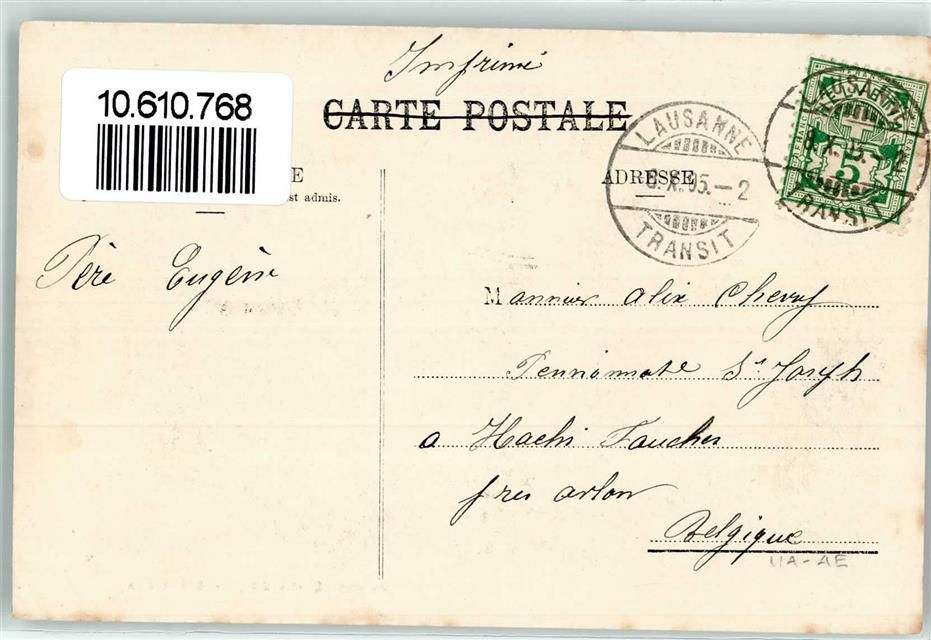 Imprimé
10.610.768
CARTE POSTALE
E
st admis.
ADRESSE
LAUSANNE
8.X.05.–2
TRANSIT
LAUSANNE
8.X.05.–
TRANSIT
5
Père Eugène
Monsieur Alix Chevry
Pensionnate St Joseph
a Hachi
pres arlon
Belgique
UA-AE